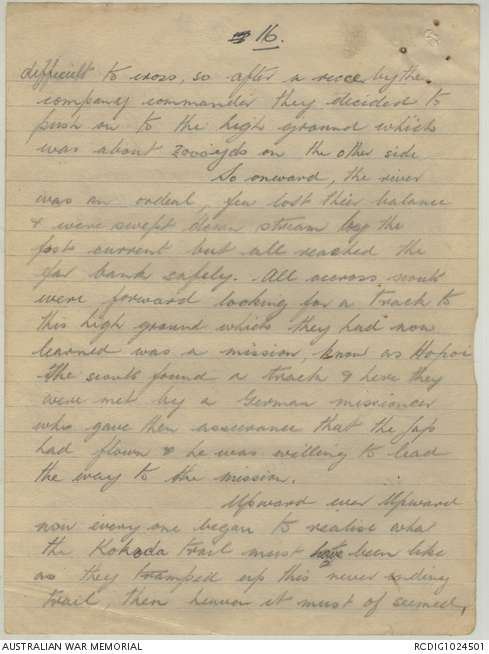 16.
difficult to cross, so after a recce by the
company commander they decided to
push on to the high ground which
was about 2000 yds on the other side
So onward, the river
was an ordeal, few lost their balance
& were swept down stream by the
fast current but all reached the
far bank safely. All accross, scouts
were forward looking for a track to
this high ground which they had now
learned was a mission, know as Hopoi
The scouts found a track & here they
were met by a German missioner
who gave then assurance that the Japs
had flown & he was willing to lead
the way to the mission.
Upward ever Upward
now every one began to realise what
the Kokoda trail must have been like
as they tramped up this never ending
trail, then heaven it must of seemed,
AUSTRALIAN WAR MEMORIAL
RCDIG1024501